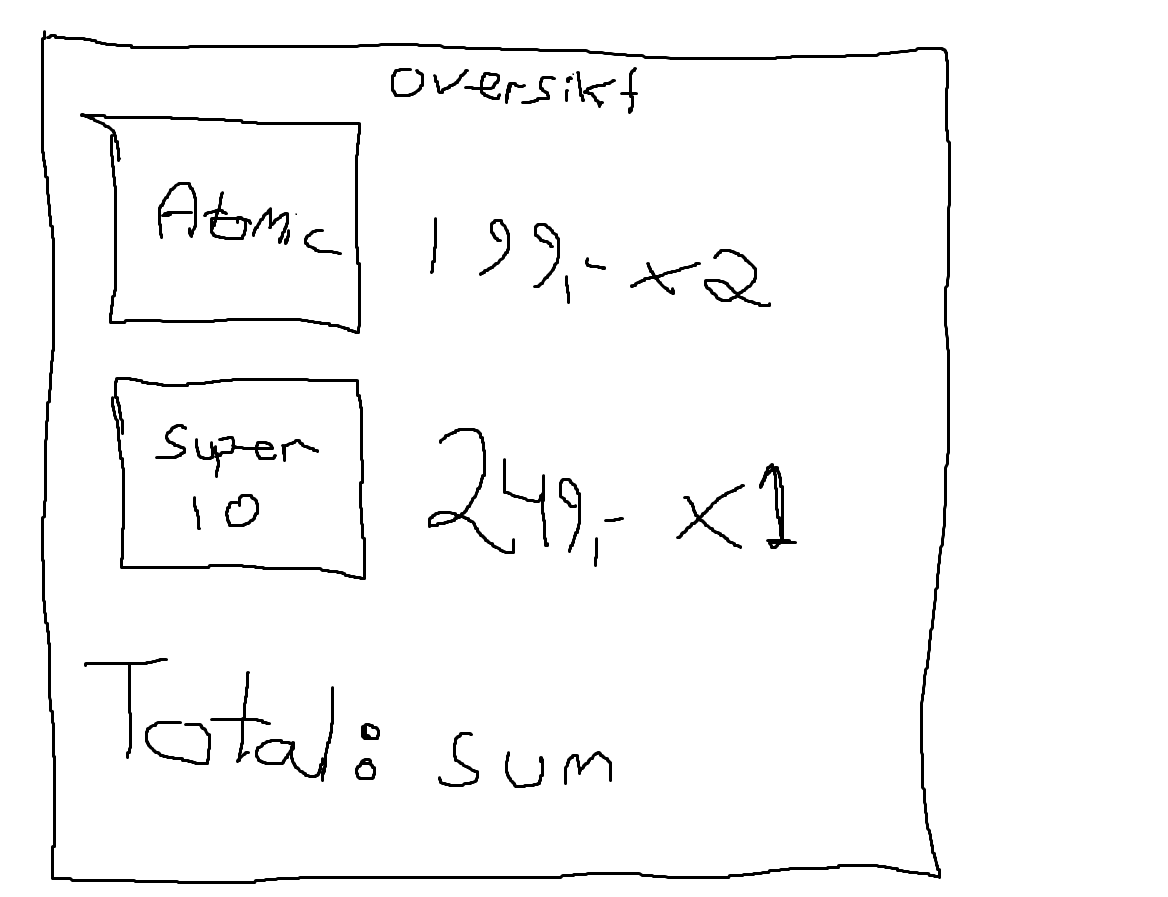 oversikt
Atomic 199,- x2
Super
10 249,- x1
Total: sum